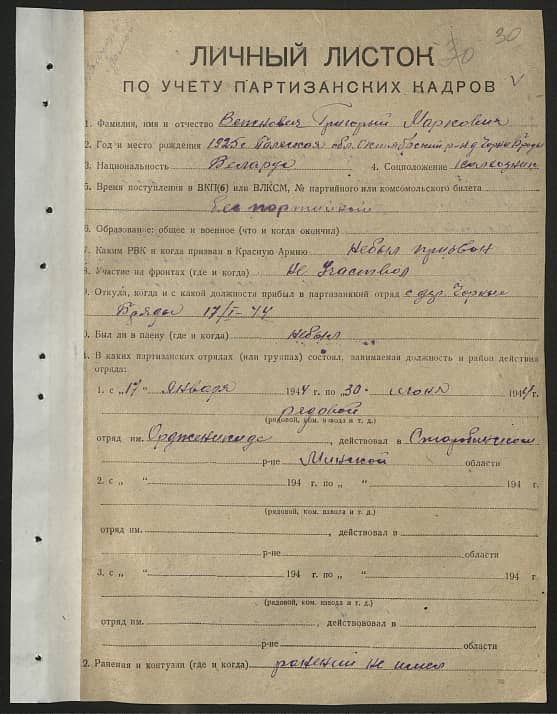 30
30
ЛИЧНЫЙ ЛИСТОК
ПО УЧЕТУ ПАРТИЗАНСКИХ КАДРОВ
1. Фамилия, имя и отчество Григорий Маркович
2. Год и место рождения 1925 г Полеская обл. Октябрьский р-н д Чорные Броды
3. Национальность Беларус 4. Соцположение Колхозник
5. Время поступления в ВКП(б) или ВЛКСМ, № партийного или комсомольского билета
Бес партийной
6. Образование: общее и военное (что и когда окончил)
7. Каким РВК и когда призван в Красную Армию Небыл призван
8. Участие на фронтах (где и когда) Не участвол
9. Откуда, когда и с какой должности прибыл в партизанский отряд с дер. Чорные
Броды 17/I-44
0. Был ли в плену (где и когда) небыл
1. В каких партизанских отрядах (или группах) состоял, занимаемая должность и район действия
отряда:
1. с „17" января 1944 г. по „30" июня 1944 г.
рядовой
(рядовой, ком. взвода и т. д.)
отряд им. Орджоникидзе, действовал в Старобинском
р-не Минской области
2. с „ " 194 г. по „ " 194 г.
(рядовой, ком. взвода и т. д.)
отряд им. , действовал в
р-не области
3. с „ " 194 г. по „ " 194 г.
(рядовой, ком. взвода и т. д.)
отряд им. , действовал в
р-не области
2. Ранения и контузии (где и когда) ранений не имел